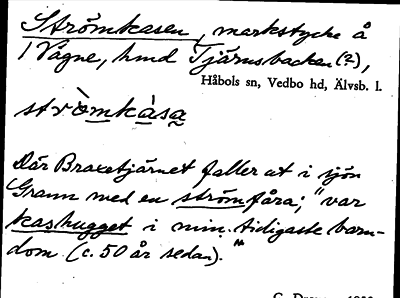 Strömkasen, markstycke å
1 Vågne, hmd Tjärnsbacken (2),
Håbols sn, Vedbo hd, Älvsb. l.
strò̈mkàsa
Där Braxetjärnet faller ut i sjön
Grann med en strömfåra; "var
kashugget i min tidigaste barn-
dom (c. 50 år sedan)."